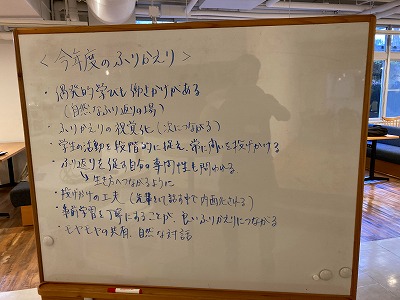 ＜今年度のふりかえり＞
・偶発的学びも働きかけがある
（自然なふり返りの場）
・ふりかえりの視覚化（次につながる）
・学生の活動を段階的に捉え、常に問いを投げかける
・ふり返りを促す自分の専門性も問われる
↳生き方へつながるように
・投げかけの工夫（先輩として話す中で内面化される）
・事前学習を丁寧にすることが、良いふりかえりにつながる
・モヤモヤの共有、自然な対話